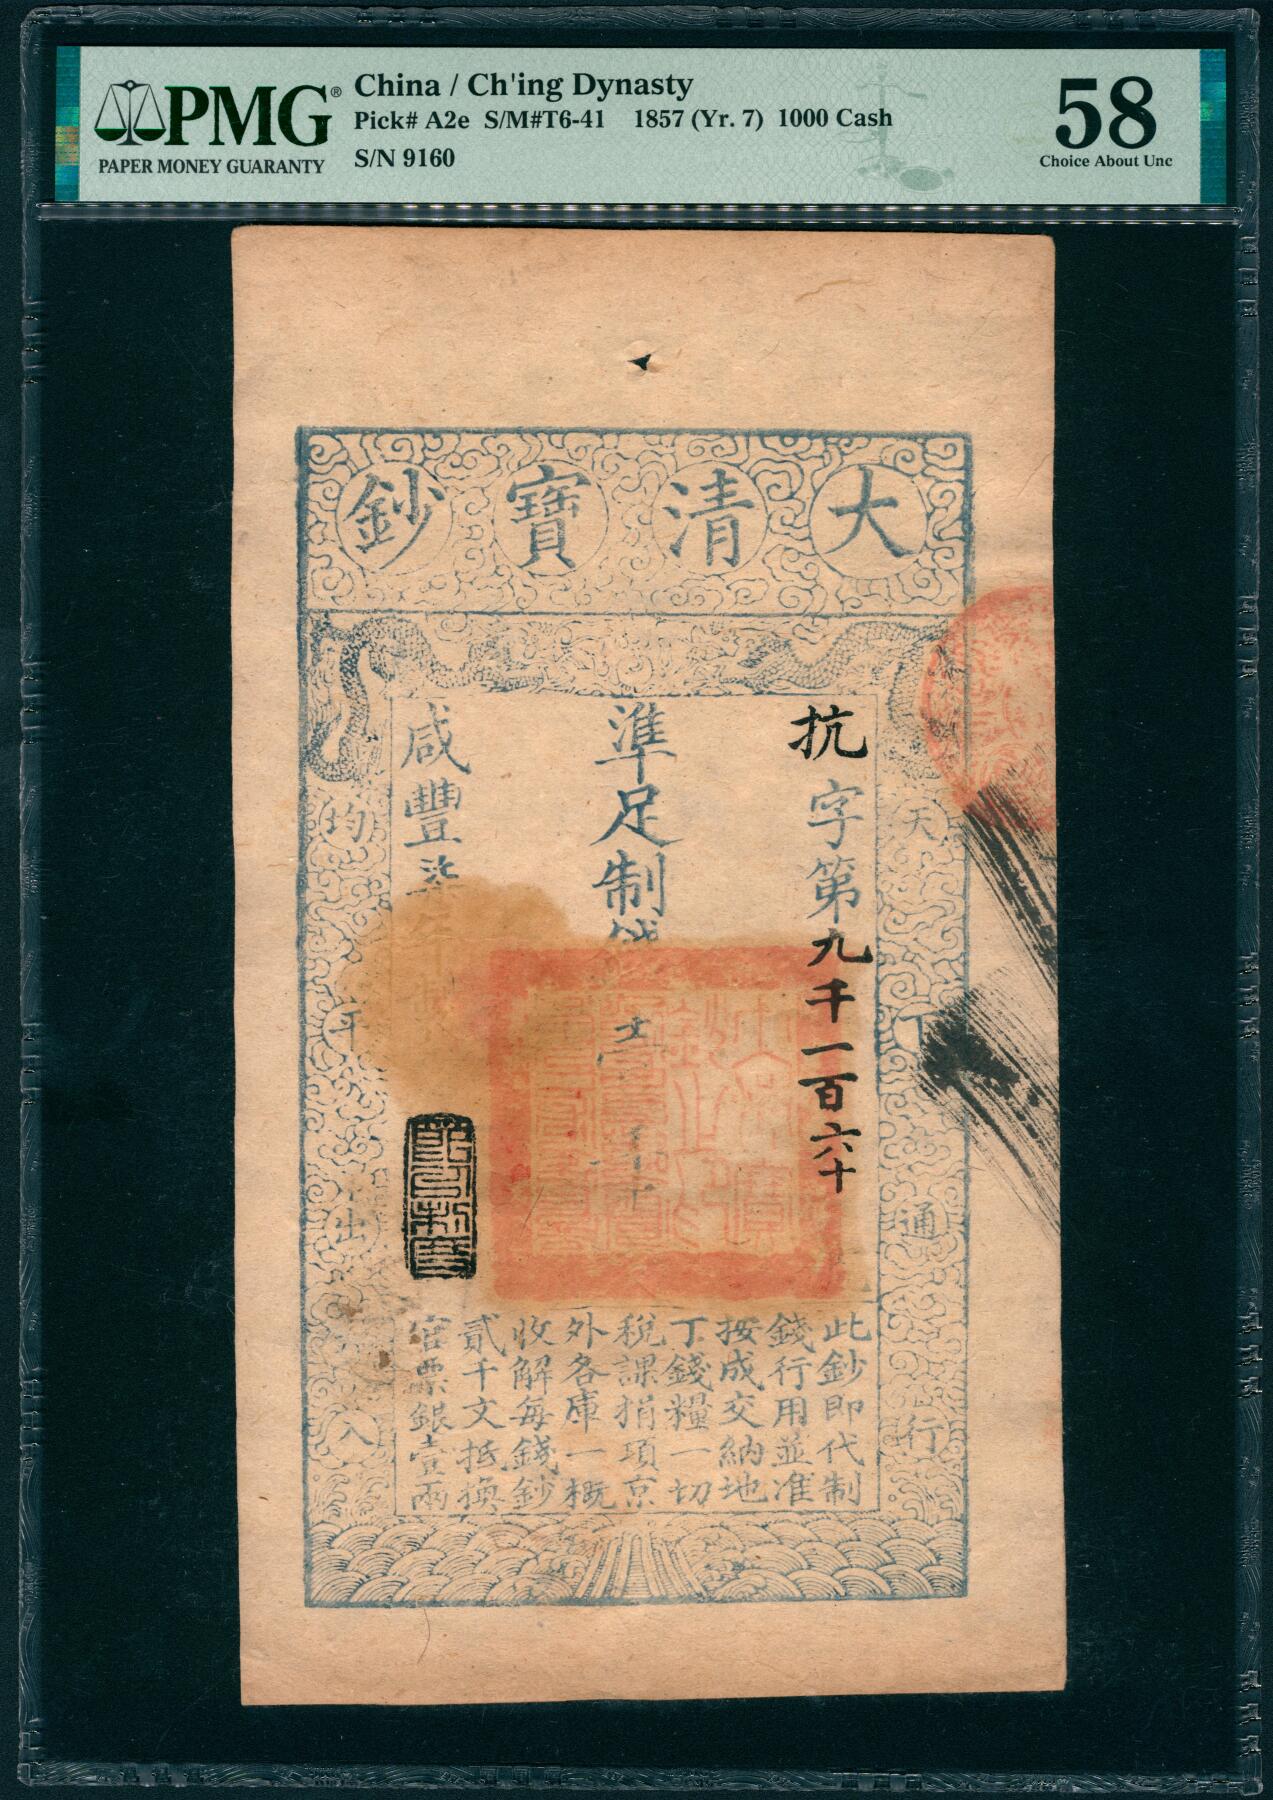 PMG®
PAPER MONEY GUARANTY
China / Ch'ing Dynasty
Pick# A2e S/M#T6-41 1857 (Yr. 7) 1000 Cash
S/N 9160
58
Choice About Unc
大清寶鈔
天下通行
均平出入
抗字第九千一百六十
準足制錢壹千文
咸豐柒年製
此鈔即代制
錢行用並准
按成交納地
丁錢糧一切
稅課捐項京
外各庫一概
收解每錢鈔
貳千文抵換
官票銀壹兩